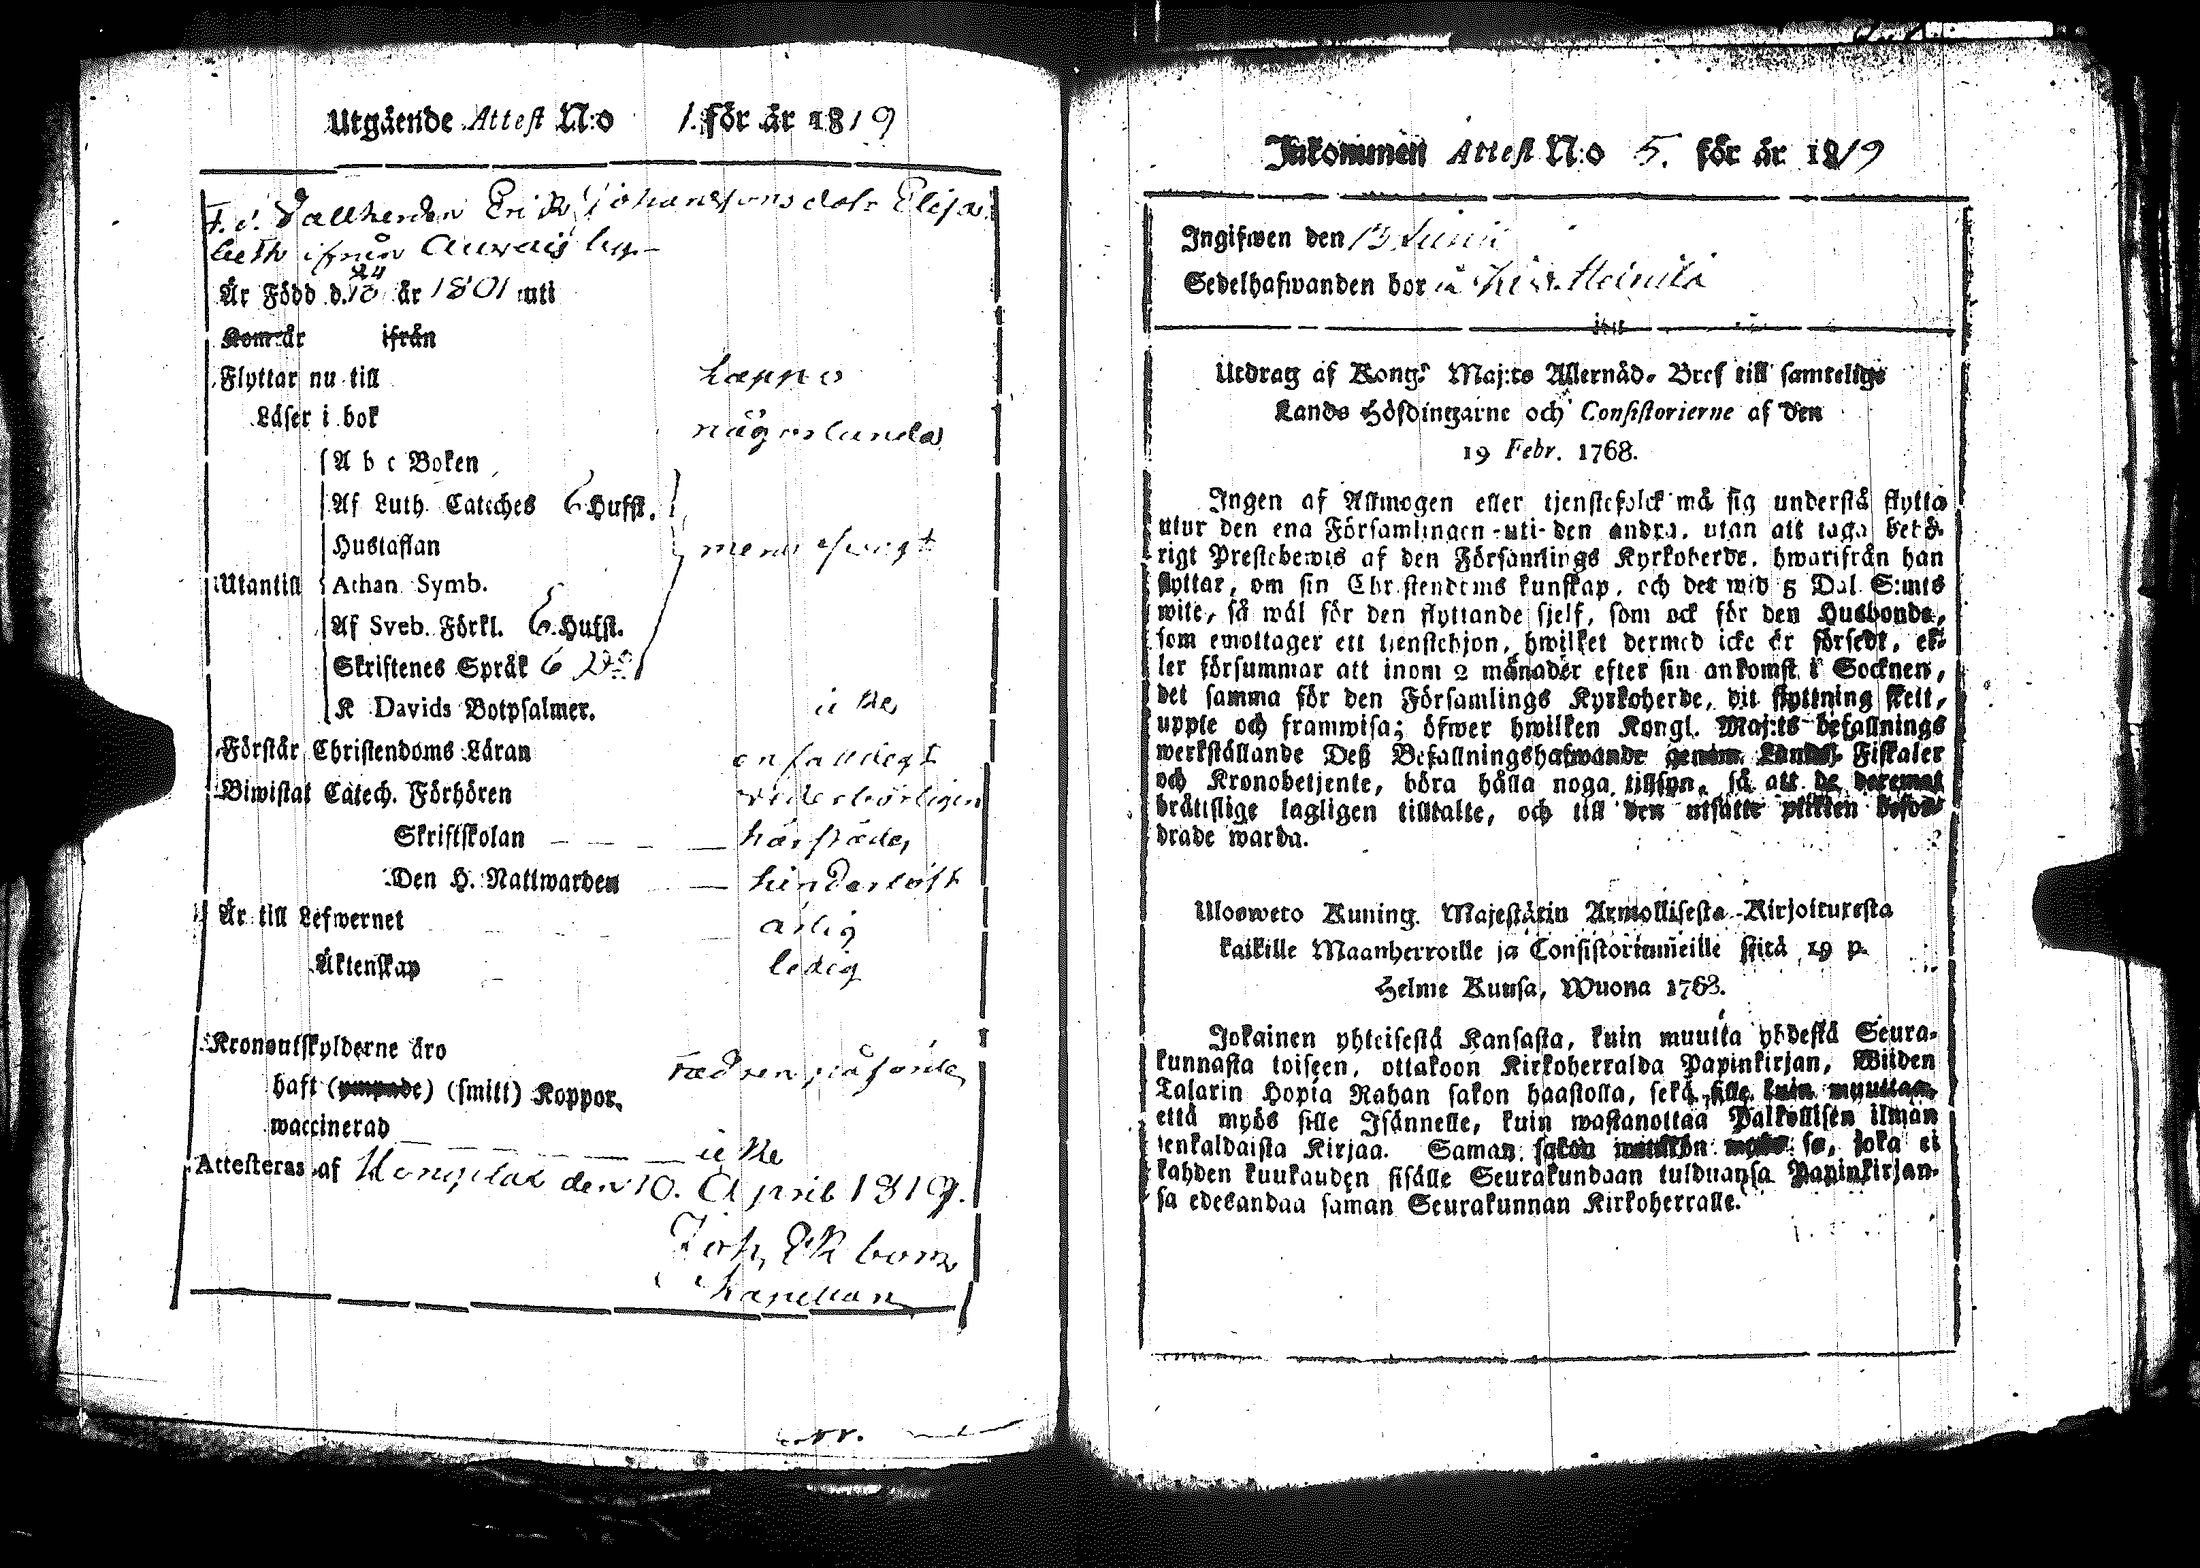 Utgående Attest N:o 1. för år 1819
F. d. Vallherden Erik Johanssons dotr Elisa-
beth ifrån
Är Född d. 24 år 1801 uti
Kom år ifrån
Flyttar nu till Loppis
Läser i bok någorlunda
A b c Boken
Af Luth. Cateches 6 Hufst.
Hustaflan
Utantill Athan. Symb.
Af Sveb. Förkl. 6. Hufst.
Skriftenes Språk 6 Do
K Davids Botpsalmer. icke
Förstår Christendoms Läran enfalldigt
Biwistat Catech. Förhören wederbörligen
Skriftskolan härstädes
Den H. Nattwarden hinderlöst
Är till Lefwernet ärlig
Äktenskap ledig
Kronoutskylderne äro
haft (ympade) (smitt) Koppor.
waccinerad icke
Attesteras af den 10. April 1819.
Joh. Ekbom
Kapellan
Inkommen Attest N:o 5. för år 1819
Ingifwen den 13 Junii
Sedelhafwanden bor i Heinilä
Utdrag af Kong. Maj:ts Allernåd. Bref till samtelige
Lands Höfdingarne och Consistorierne af den
19 Febr. 1768.
Ingen af Allmogen eller tjenstefolck må sig understå flytta
utur den ena Församlingen uti den andra, utan att taga behö-
rigt Prestebewis af den Församlings Kyrkoherde, hwarifrån han
flyttar, om sin Christendoms kunskap, och det wid 5 Dal. S:mts
wite, så wäl för den flyttande sjelf, som ock för den Husbonde,
som emottager ett tjenstehjon, hwilket dermed icke är försedt, el-
ler försummar att inom 2 månader efter sin ankomst i Socknen,
det samma för den Församlings Kyrkoherde, dit flyttning skett,
uppte och framwisa; öfwer hwilken Kongl. Maj:ts befallnings
werkställande Deß Befallningshafwande genom Lands Fiskaler
och Kronobetjente, böra hålla noga tillsyn, så att de deremot
brättslige lagligen tilltalte, och till den utsatte plikten befod-
drade warda.
Ulosweto Kuning. Majestätin Armollisesta Kirjoituxesta
kaikille Maanherroille ja Consistoriumeille siitä 19 p.
Helme Kuusa, Wuona 1768.
Jokainen yhteisestä Kansasta, kuin muutta yhdestä Seura-
kunnasta toiseen, ottakoon Kirkoherralda Papinkirjan, Wiiden
Talarin Hopia Rahan sakon haastolla, sekä sille kuin muuttaa,
että myös sille Isännelle, kuin wastanottaa Palkollisen ilman
senkaldaista Kirjaa. Saman sakon se, joka ei
kahden kuukauden sisälle Seurakundaan tulduansa Papinkirjan-
sa edesandaa saman Seurakunnan Kirkoherralle.